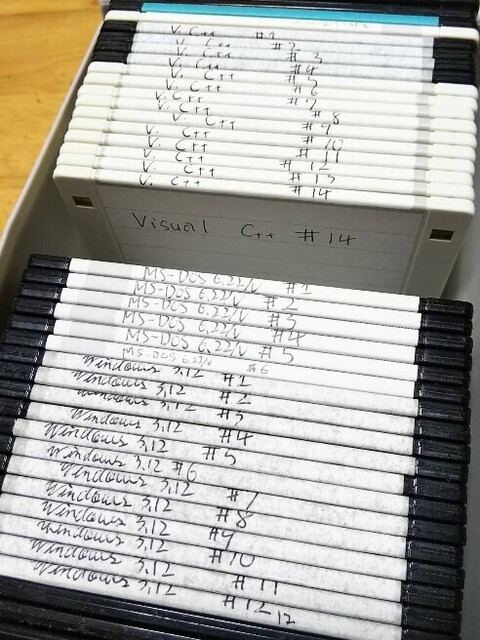 V. C++ #1
V. C++ #2
V. C++ #3
V. C++ #4
V. C++ #5
V. C++ #6
V. C++ #7
V. C++ #8
V. C++ #9
V. C++ #10
V. C++ #11
V. C++ #12
V. C++ #13
V. C++ #14
Visual C++ #14
MS-DOS 6.22/V #1
MS-DOS 6.22/V #2
MS-DOS 6.22/V #3
MS-DOS 6.22/V #4
MS-DOS 6.22/V #5
MS-DOS 6.22/V #6
Windows 3.12 #1
Windows 3.12 #2
Windows 3.12 #3
Windows 3.12 #4
Windows 3.12 #5
Windows 3.12 #6
Windows 3.12 #7
Windows 3.12 #8
Windows 3.12 #9
Windows 3.12 #10
Windows 3.12 #11
Windows 3.12 #12
12